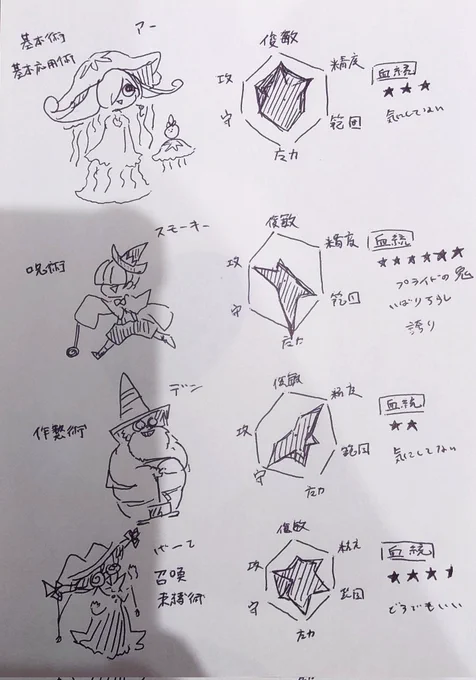 基本術
基本応用術
アー
俊敏
精度
範囲
圧力
守
攻
血統
★★★
気にしてない
呪術
スモーキー
俊敏
精度
範囲
圧力
守
攻
血統
★★★★★★
プライドの鬼
いばりちらし
誇り
作製術
デン
俊敏
精度
範囲
圧力
守
攻
血統
★★
気にしてない
召喚
束縛術
俊敏
範囲
圧力
守
攻
血統
どうでもいい